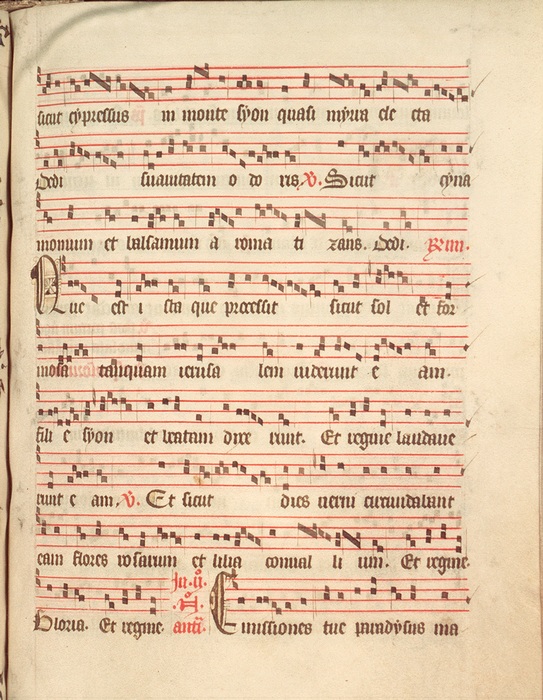 sicut cypressus in monte syon quasi mirra ele cta
Dedi suauitatem o do ris V. Sicut cyna
momum et balsamum a roma ti zans. Dedi.
Que est i sta que processit sicut sol et for
mosa tanquam ierusa lem uiderunt e am.
fili e syon et beatam dixe runt. Et regine laudaue
runt e am. V. Et sicut dies uerni circumdabant
eam flores rosarum et lilia conual li um. Et regine.
Gloria. Et regine. ant. Emissiones tue paradysus ma